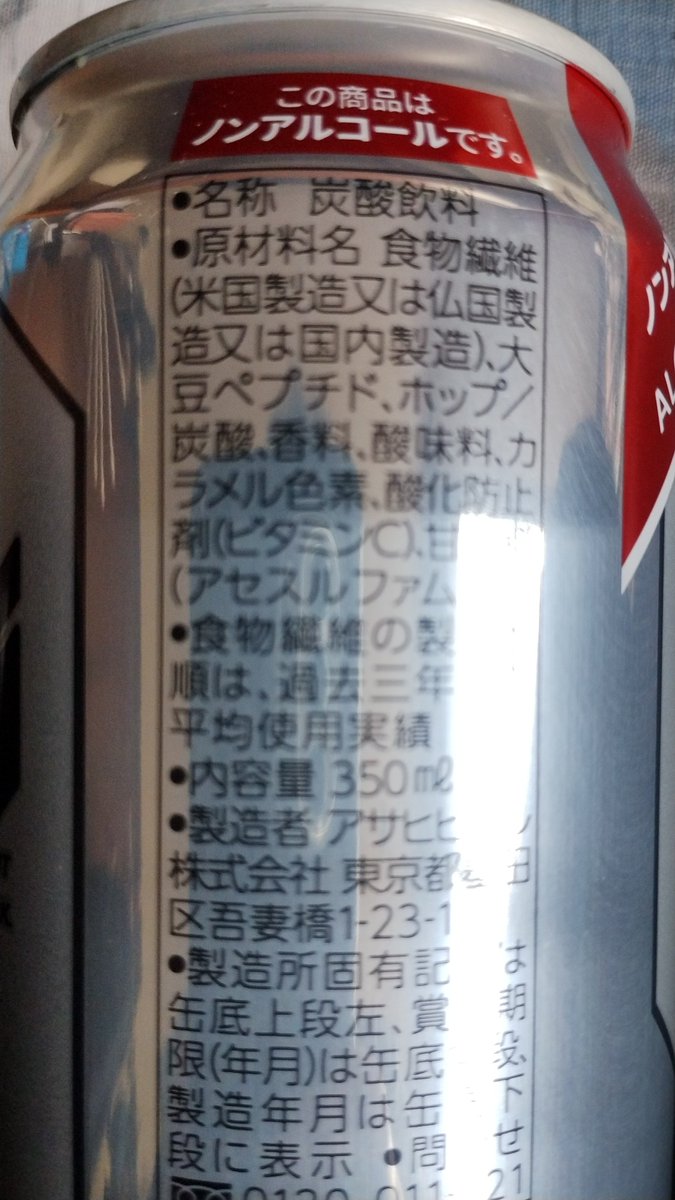 この商品は
ノンアルコールです。
•名称 炭酸飲料
•原材料名 食物繊維
(米国製造又は仏国製
造又は国内製造)、大
豆ペプチド、ホップ/
炭酸、香料、酸味料、カ
ラメル色素、酸化防止
剤(ビタミンC)、甘
(アセスルファム
•食物繊維の製
順は、過去三年
平均使用実績
•内容量 350ml
•製造者 アサヒビ
株式会社 東京都 田
区吾妻橋1-23-1
•製造所固有記 は
缶底上段左、賞 期
限(年月)は缶底 段、
製造年月は缶 下
段に表示 •問 せ
0120-011- 21
ノン
AL